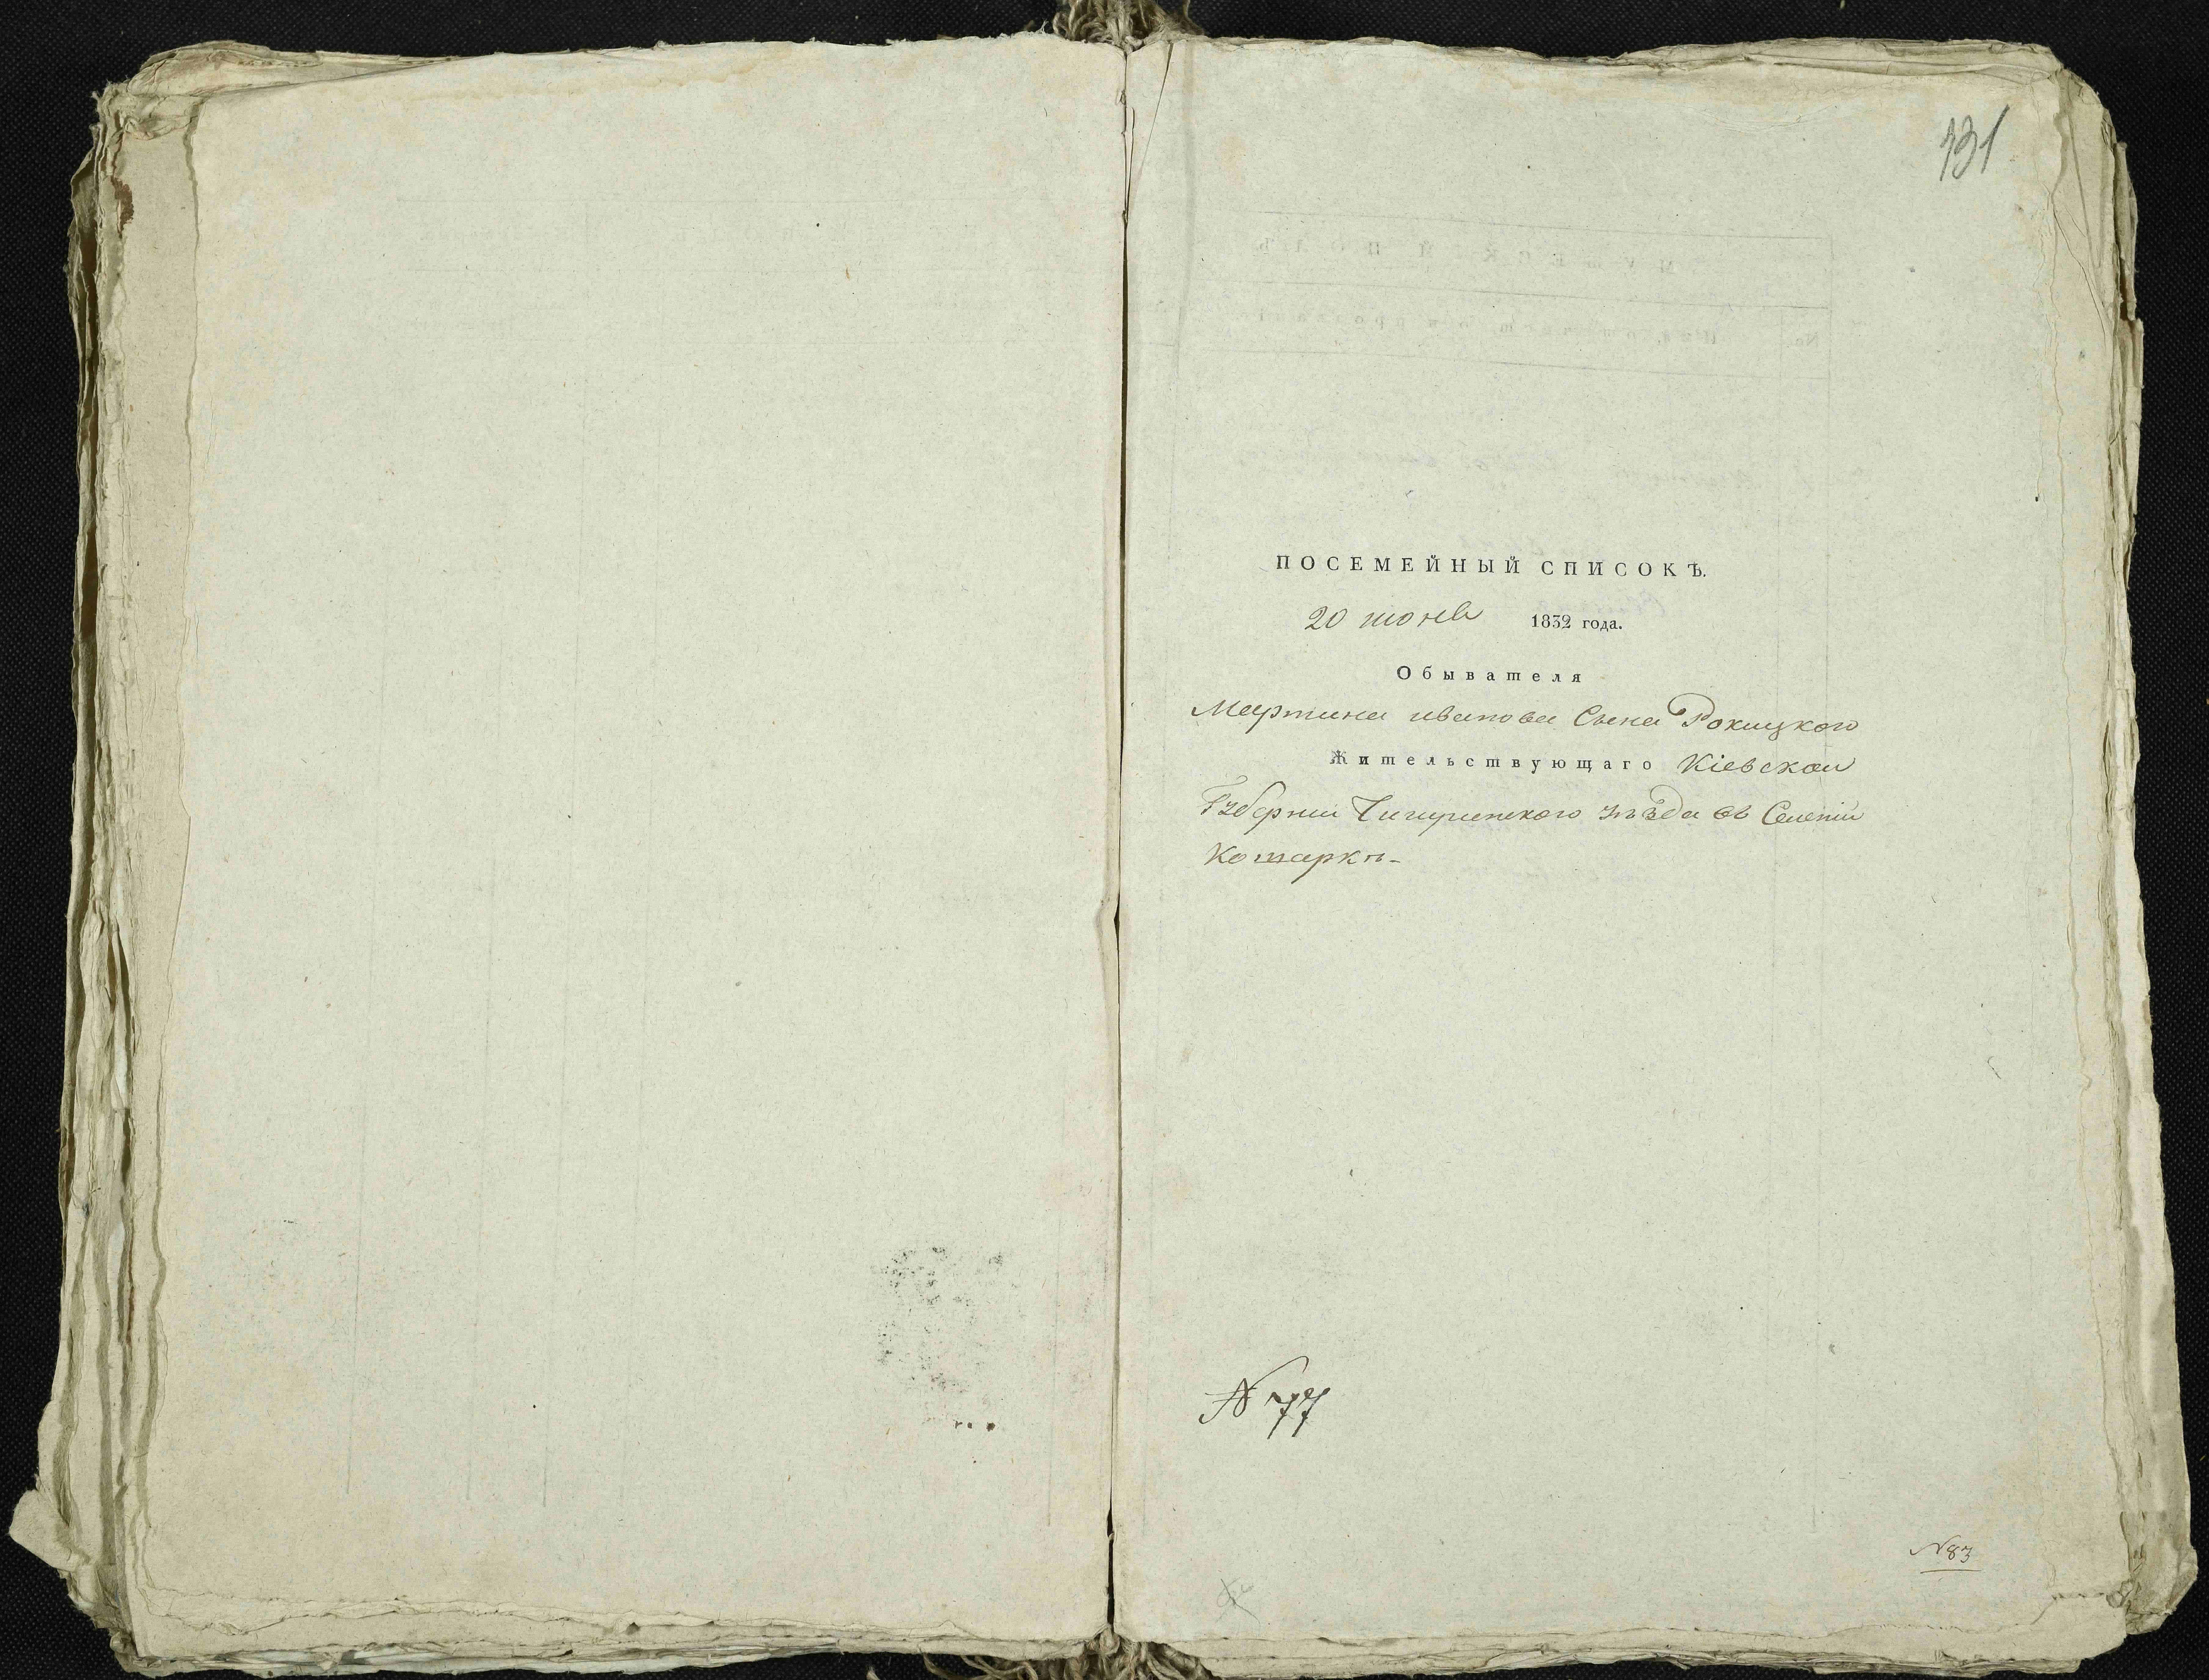 131
ПОСЕМЕЙНЫЙ СПИСОКЪ.
20 июнв 1832 года.
Обывателя
Мартина иванова Сына Рокицкого
Жительствующаго Кіевской
Губерніи Чигиринского уѣзда въ Селеніи
Котаркѣ-
N 77
N83